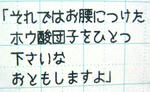 「それではお腰につけた
ホウ酸団子をひとつ
下さいな
おともしますよ」